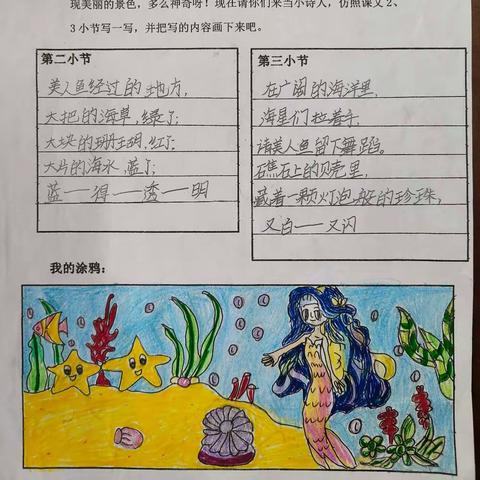 现美丽的景色，多么神奇呀！现在请你们来当小诗人，仿照课文2、
3小节写一写，并把写的内容画下来吧。
第二小节
美人鱼经过的地方，
大把的海草，绿了；
大块的珊瑚，红了；
大片的海水，蓝了；
蓝——得——透——明
第三小节
在广阔的海洋里，
海星们拉着手，
请美人鱼留下舞蹈。
礁石上的贝壳里，
藏着一颗灯泡般的珍珠，
又白——又闪
我的涂鸦：